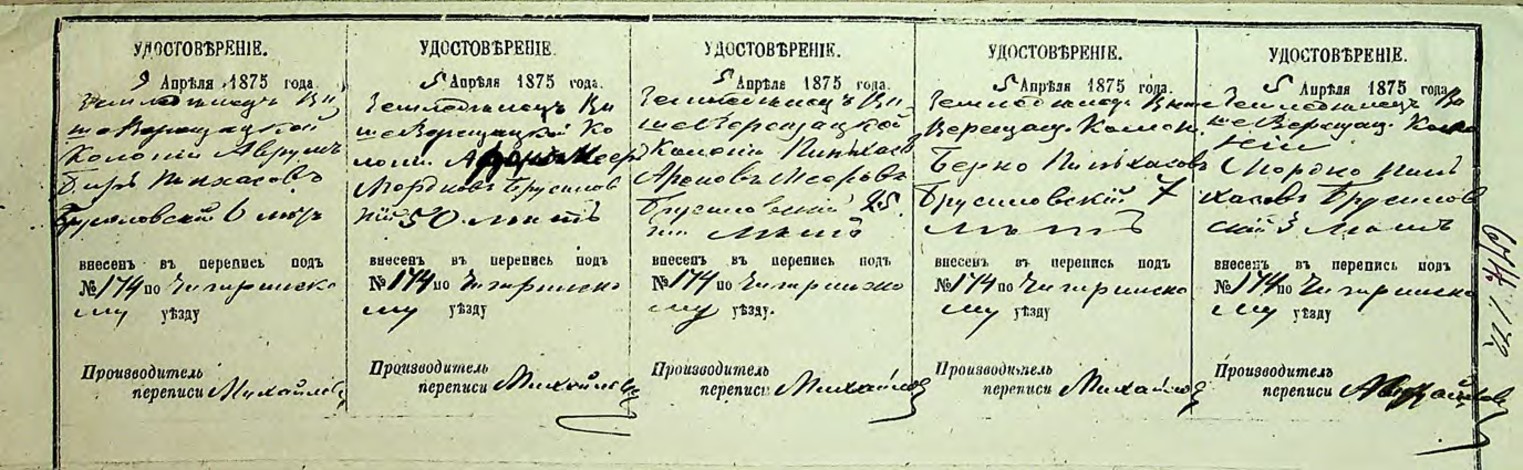 УДОСТОВѢРЕНІЕ.
5 Апрѣля 1875 года
Земледѣлецъ Вы
шеверещацкой
Колоніи Аврумъ
Пинхасовъ
Брусиловскій 6 лѣтъ
внесенъ въ перепись подъ
№ 174 по Чигиринско
му уѣзду
Производитель
переписи Михайловъ
УДОСТОВѢРЕНІЕ.
5 Апрѣля 1875 года.
Земледѣлецъ Вы
шеверещацкой Ко
лоніи
Мордковъ Брусилов
скій 50 лѣтъ
внесенъ въ перепись подъ
№ 174 по Чигиринско
му уѣзду
Производитель
переписи Михайловъ
УДОСТОВѢРЕНІЕ.
5 Апрѣля 1875 года.
Земледѣлецъ Вы
шеверещацкой
Колоніи Пинхасъ
Ароновъ Мееровъ
Брусиловскій 25
лѣтъ
внесенъ въ перепись подъ
№ 174 по Чигиринско
му уѣзду.
Производитель
переписи Михайловъ
УДОСТОВѢРЕНІЕ.
5 Апрѣля 1875 года.
Земледѣлецъ Выше
Верещац. Колон.
Берко Пинхасовъ
Брусиловскій 7
лѣтъ
внесенъ въ перепись подъ
№ 174 по Чигиринско
му уѣзду
Производитель
переписи Михайловъ
УДОСТОВѢРЕНІЕ.
5 Апрѣля 1875 года
Земледѣлецъ Вы
шеверещац. Коло
ніи
Мордко Пин
хасовъ Брусилов
скій 3 лѣтъ
внесенъ въ перепись подъ
№ 174 по Чигиринско
му уѣзду
Производитель
переписи Михайловъ